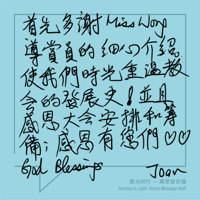 首先多謝Miss Wong
導賞員的細心介紹
使我們時光重溫教
會的發展史！並且
感恩大會安排和籌
備；感恩有您們♡♡
God Blessings
Joan
Journey in Light: Vision Message Wall